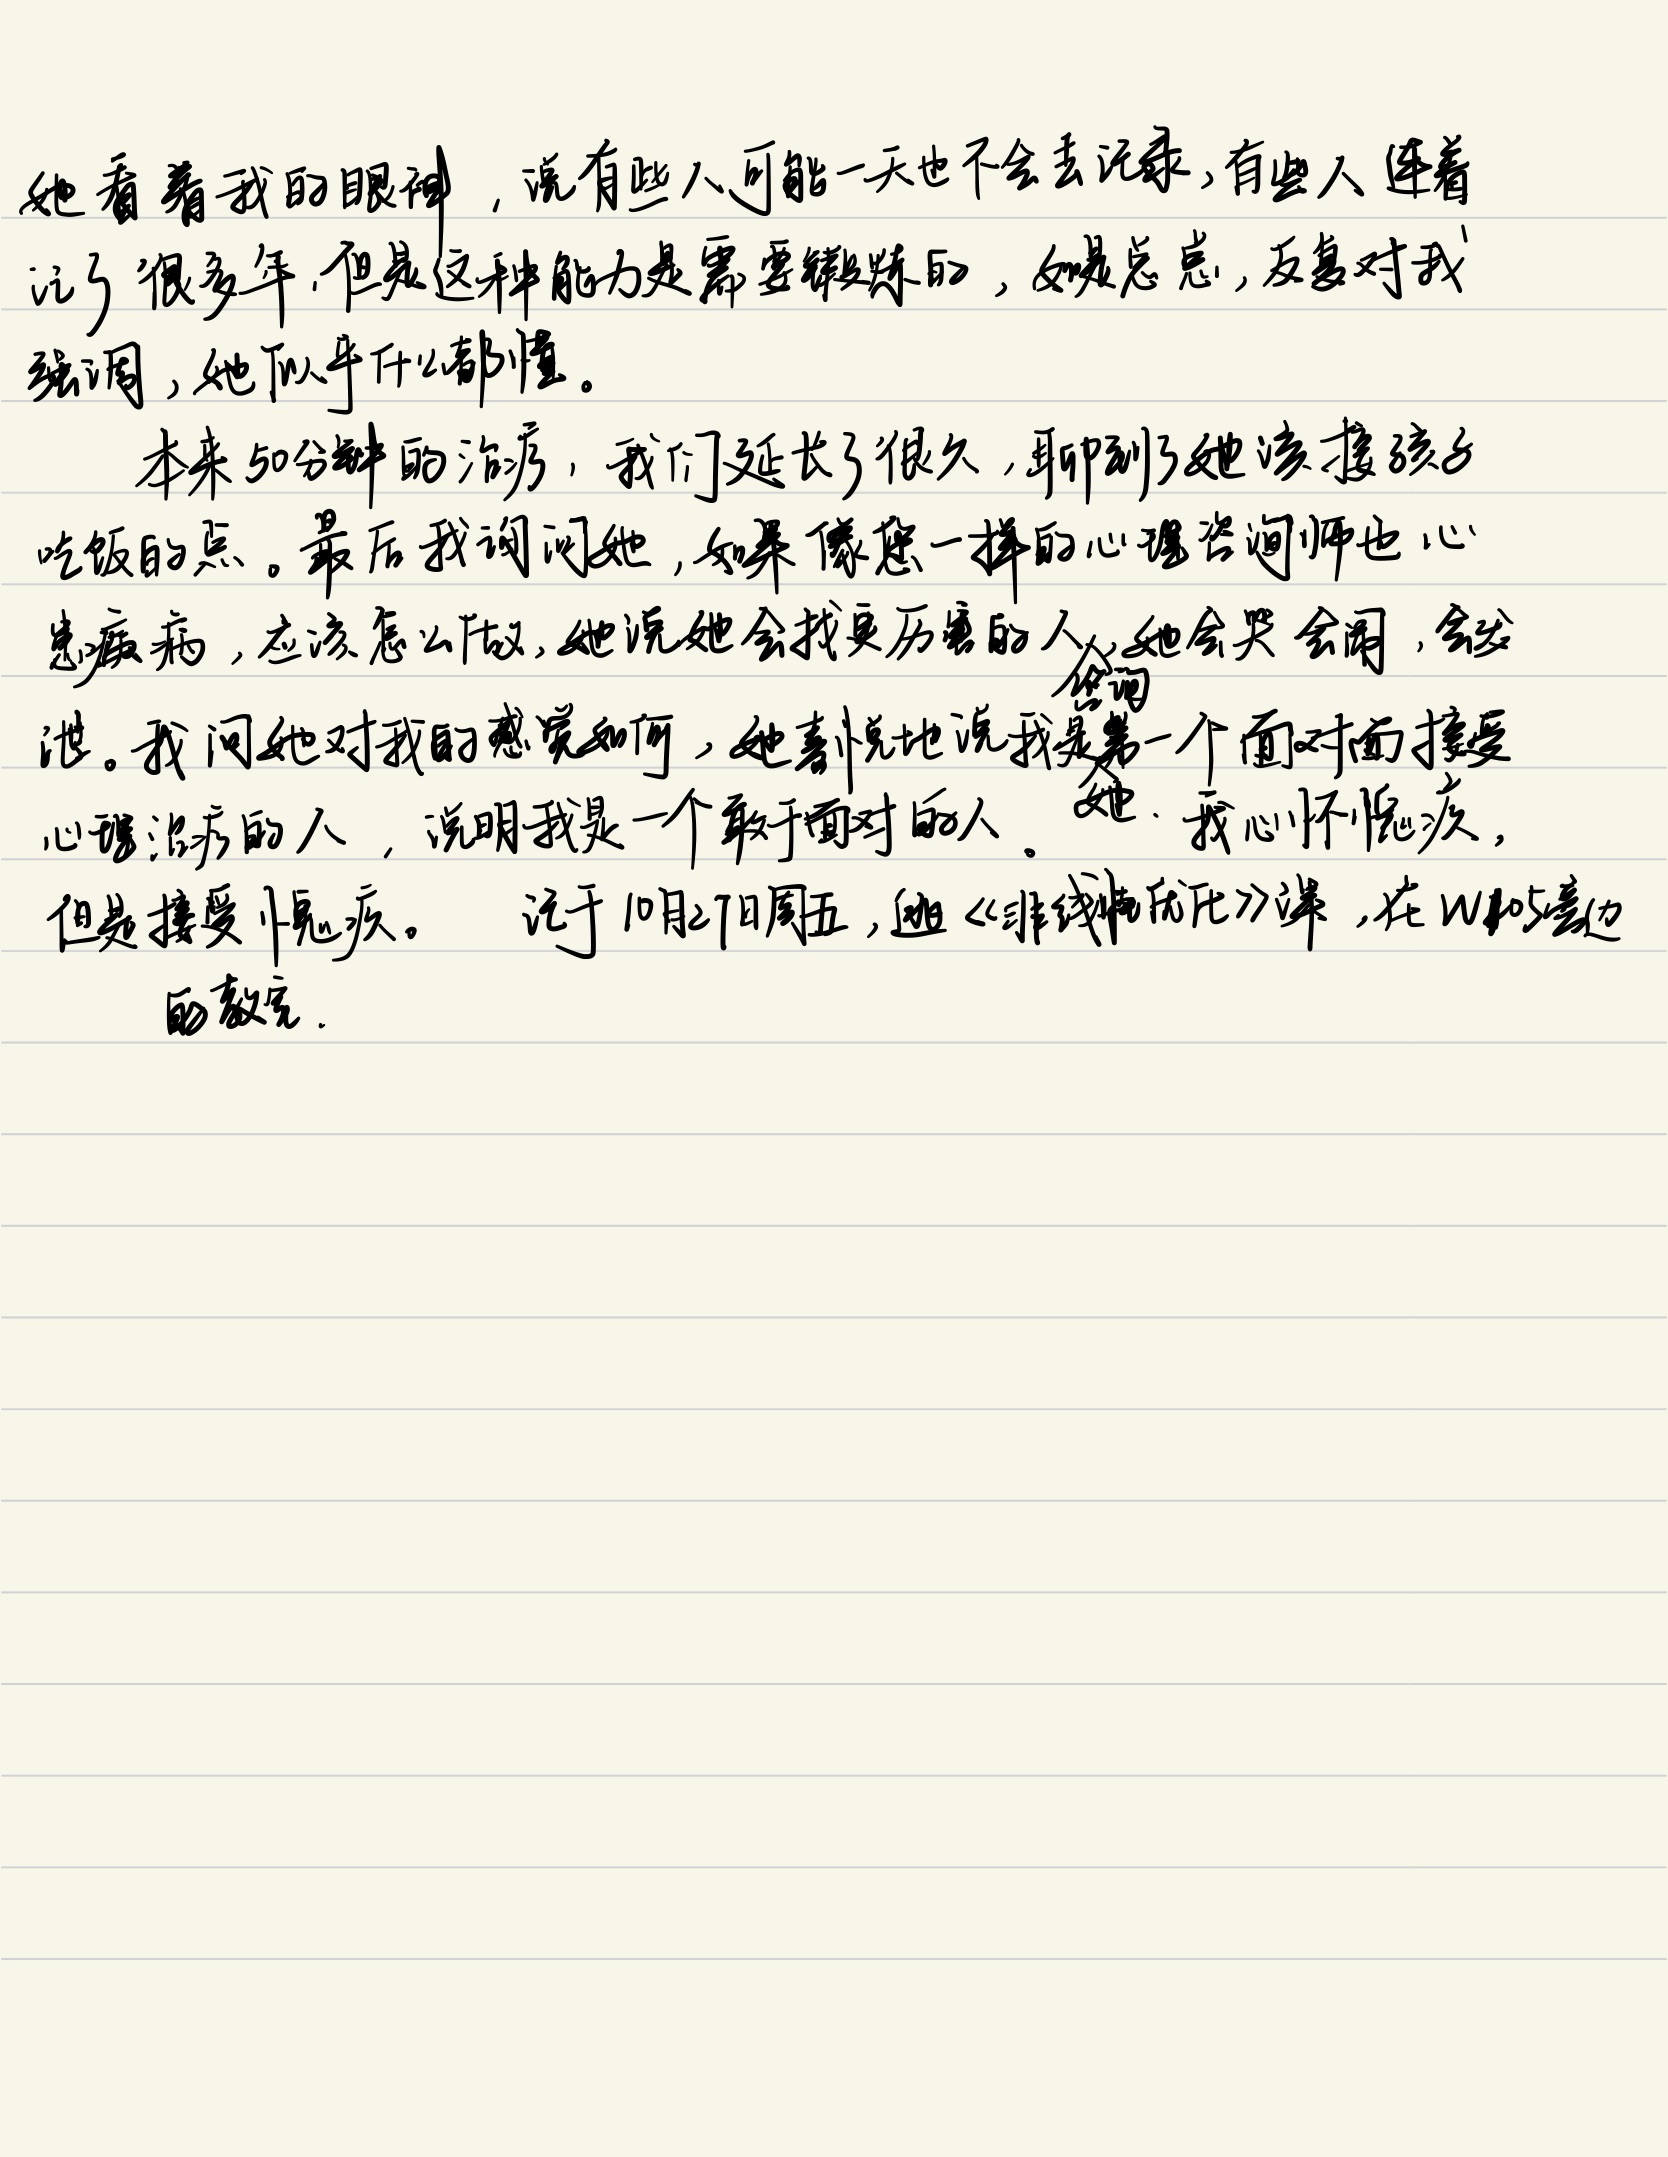 她看着我的眼神，说有些人可能一天也不会去记录，有些人连着
记了很多年，但是这种能力是需要锻炼的，如是总总，反复对我
强调，她似乎什么都懂。
本来50分钟的治疗，我们延长了很久，聊到了她该接孩子
吃饭的点。最后我询问她，如果像您一样的心理咨询师也心
患疾病，应该怎么做，她说她会找更厉害的人，她会哭会闹，会发
咨询
泄。我问她对我的感觉如何，她喜悦地说我是第一个面对面接受
她
心理治疗的人，说明我是一个敢于面对的人。我心怀愧疚，
但是接受愧疚。 记于10月27日周五，逃《非线性优化》课，在W105旁边
的教室.